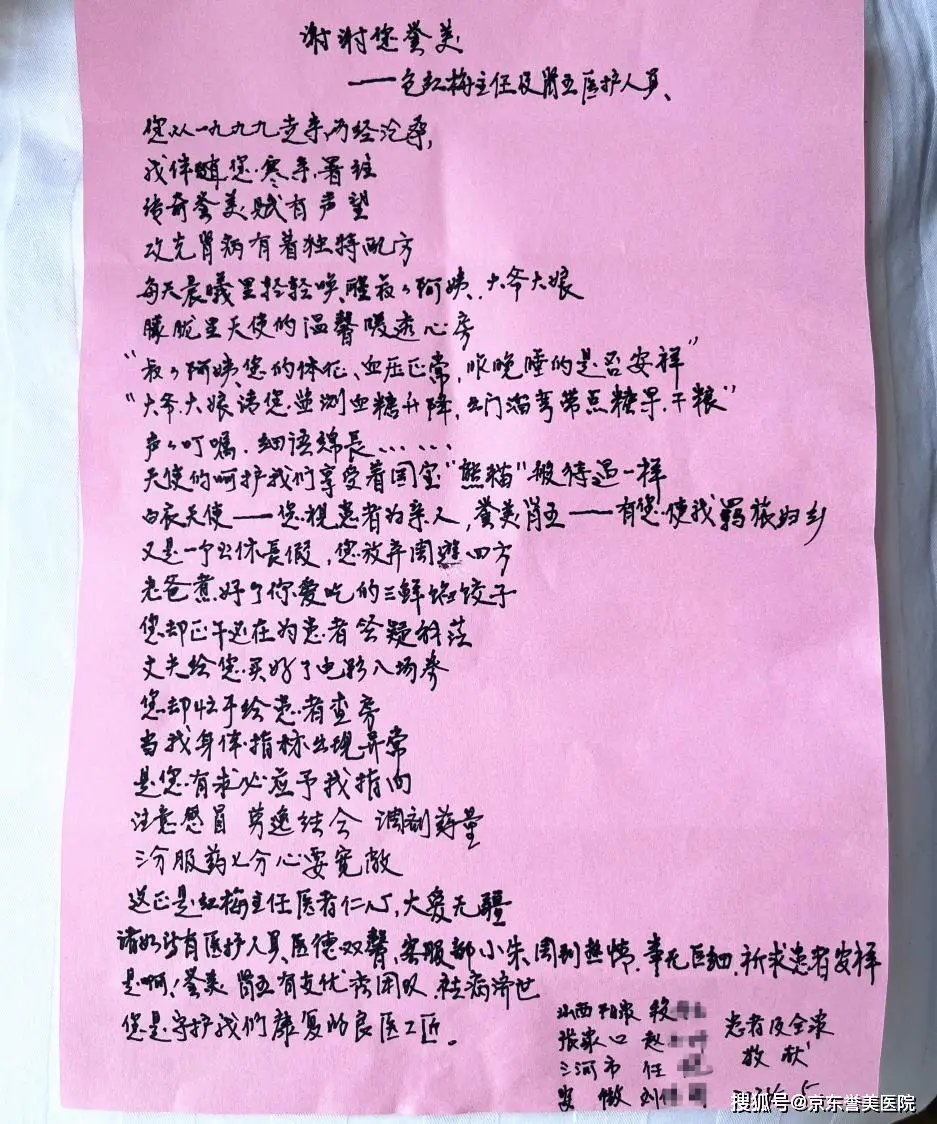 谢谢您誉美
——包红梅主任及肾五医护人员、
您从一九九九走来,历经沧桑,
我伴随您.寒来.暑往
传奇誉美,赋有声望
攻克肾病有着独特配方
每天晨曦里轻轻唤醒叔叔阿姨.大爷大娘
朦胧里天使的温馨暖透心房
"叔叔阿姨,您的体征、血压正常,昨晚睡的是否安祥"
"大爷.大娘.请您.监测血糖升降,出门溜弯带点糖果.干粮"
声声叮嘱.细语绵長......
天使的呵护我们享受着国宝"熊猫"般待遇一样
白衣天使——您视患者为亲人,誉美肾五——有您使我羁旅归乡
又是一个公休長假,您放弃周遊四方
老爸煮好了你爱吃的三鲜馅饺子
您却正午还在为患者答疑释茫
丈夫给您买好了电影入场券
您却忙于给患者查房
当我身体指标出现异常
是您有求必应予我指向
注意感冒 劳逸结合 调剂药量
三分服药七分心要宽敞
这正是红梅主任医者仁心,大爱无疆
诸如皆有医护人员,医德双馨,客服部小朱,周到热情,事无巨细,祈求患者安祥
是啊!誉美肾五有支优秀团队.祛病济世
您是守护我们康复的良医工匠。
山西 阳泉 段
张家口 赵
三河市 任
安徽 刘
患者及全家
敬献
搜狐号@京东誉美医院